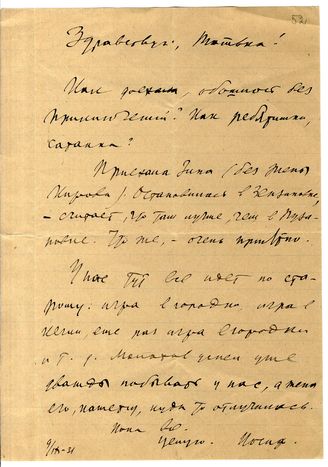 52
Здравствуй, Татька!
Как доехала, обошлось без
приключений? Как ребятишки,
Сатанка?
Приехала Зина (без жены
Кирова). Остановилась в Зензиновке,
– считает, что там лучше, чем в Пуза-
новке. Что же, – очень приятно.
У нас тут все идет по ста-
рому: игра в городки, игра в
кегли, еще раз игра в городки
и т. д. Молотов успел уже
дважды побывать у нас, а жена
его, кажется, куда-то отлучилась.
Пока все.
Целую. Иосиф.
9/IX-31